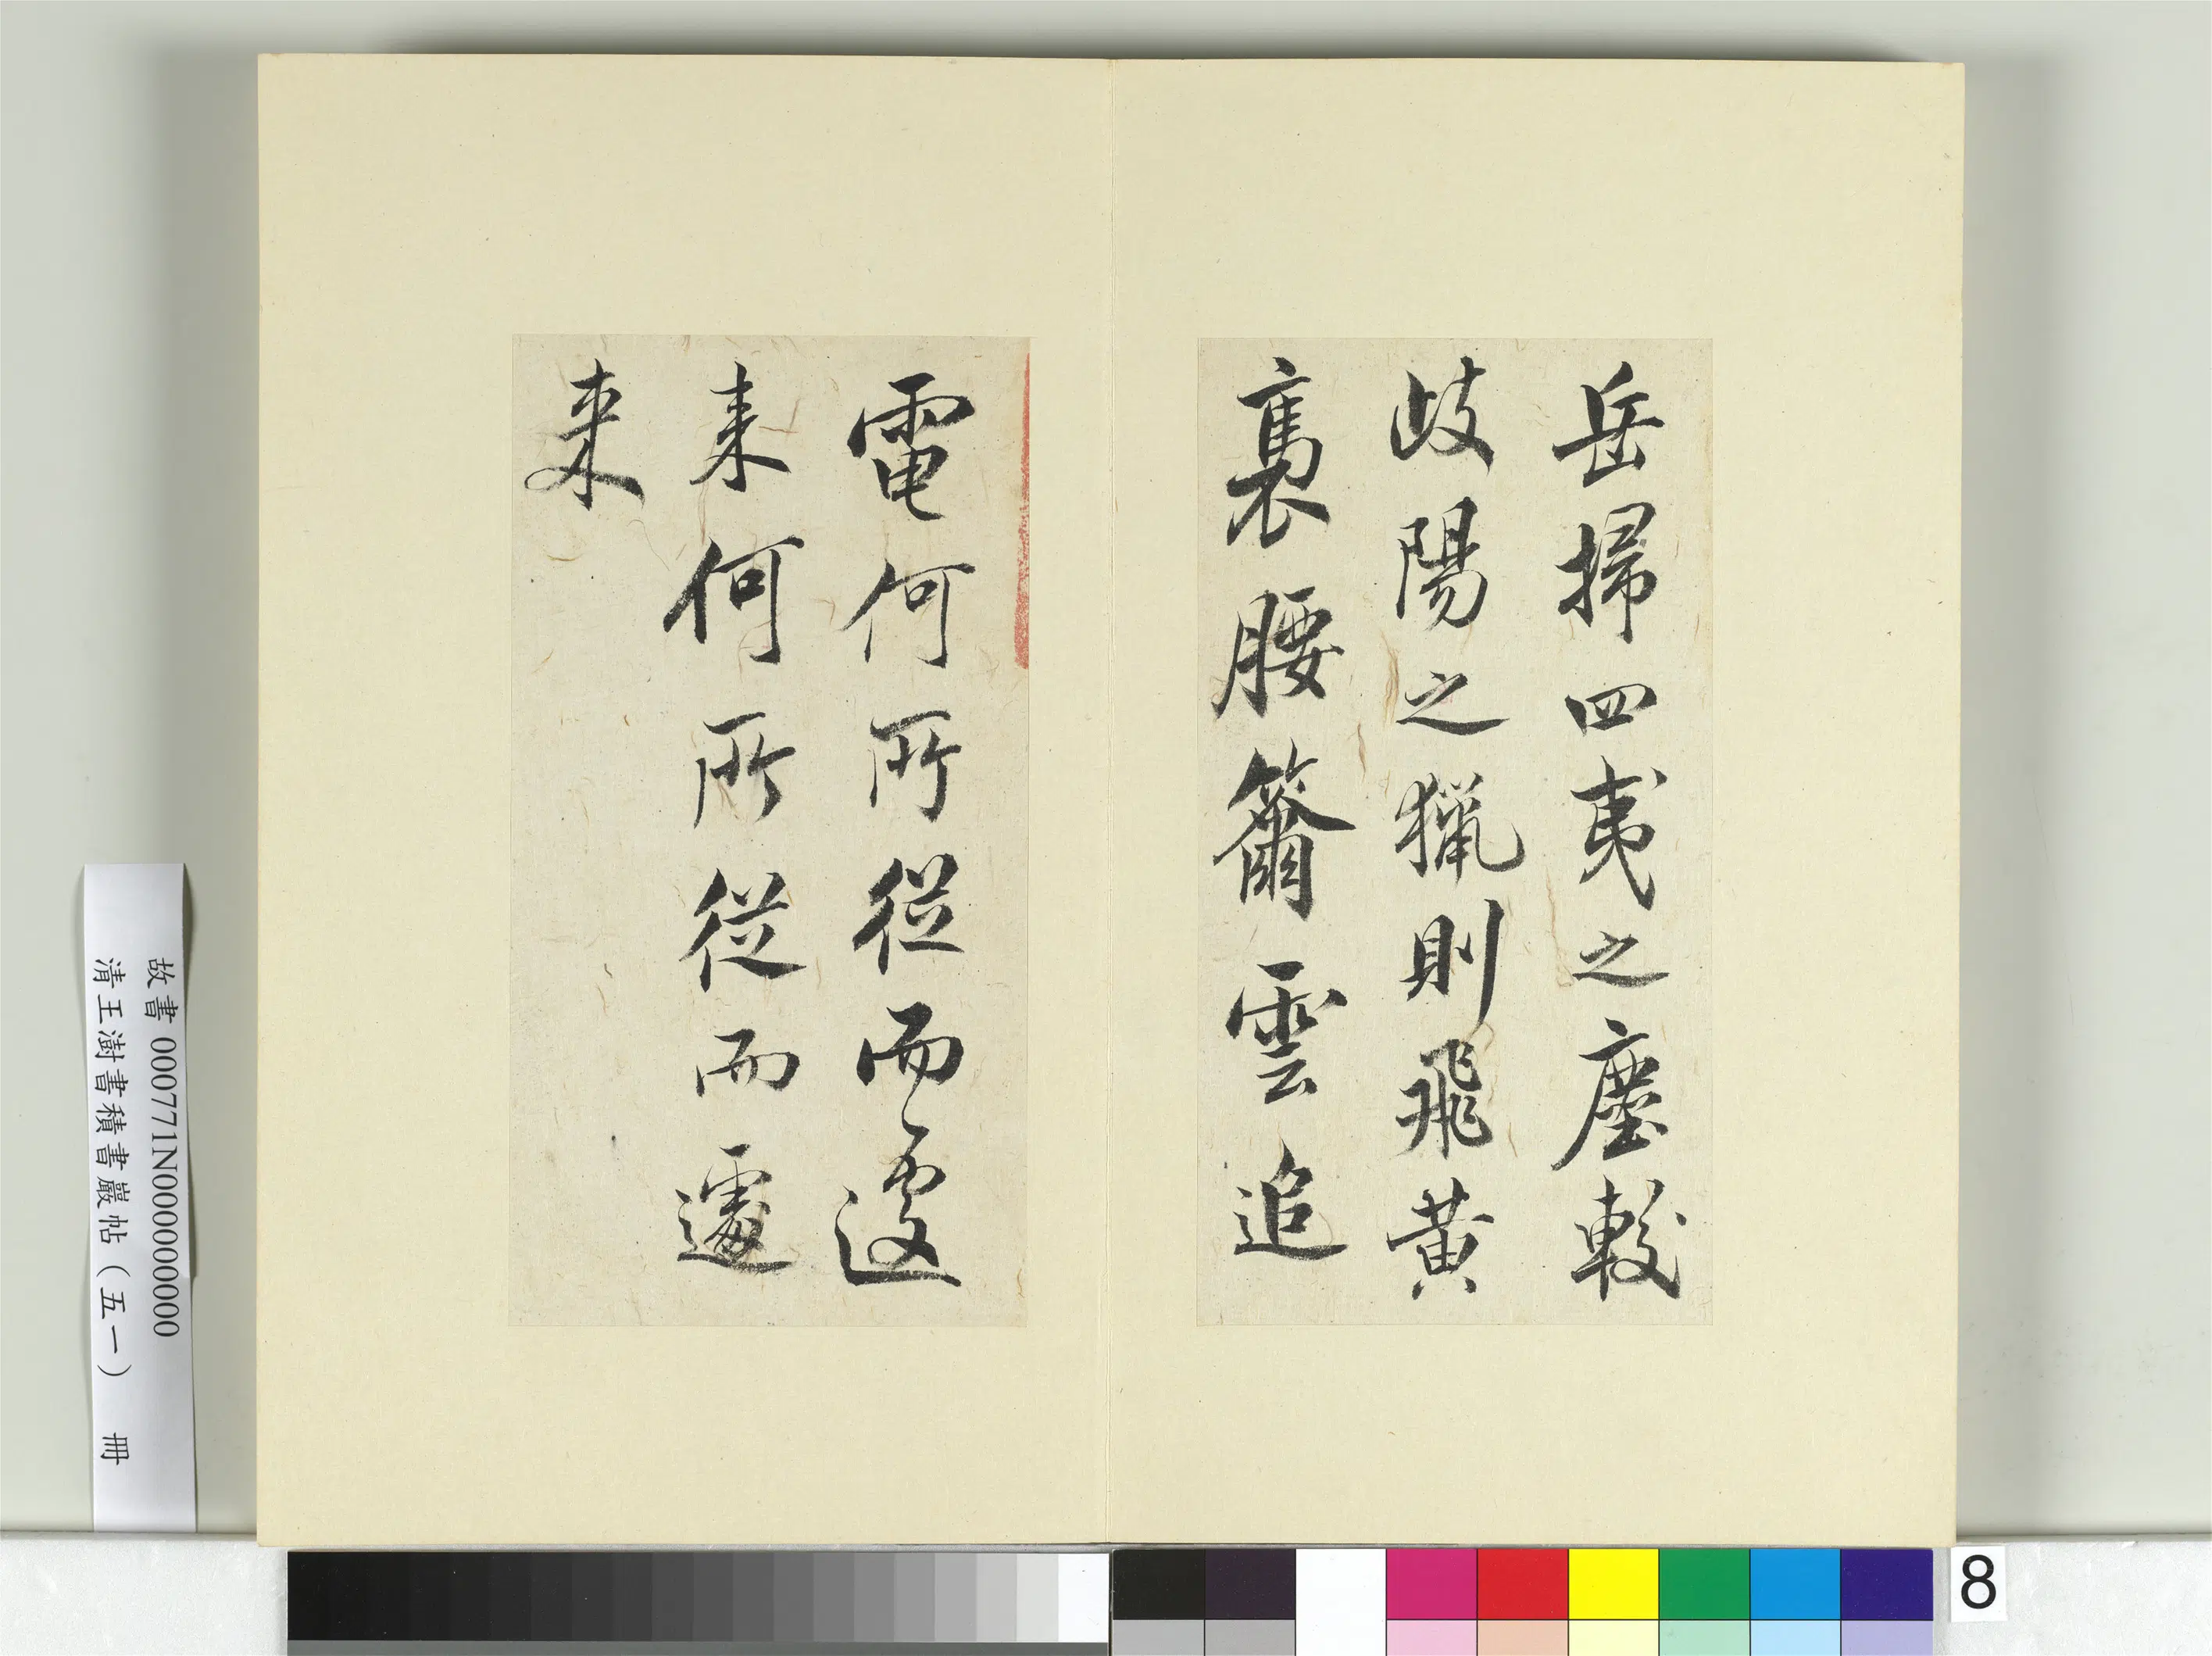 岳掃四夷之塵較
歧陽之獵則飛黃
褭腰籋雲追
電何所從而遽
来何所從而遽
来
故書 000771N000000000
清王澍書積書巖帖（五一） 冊
8